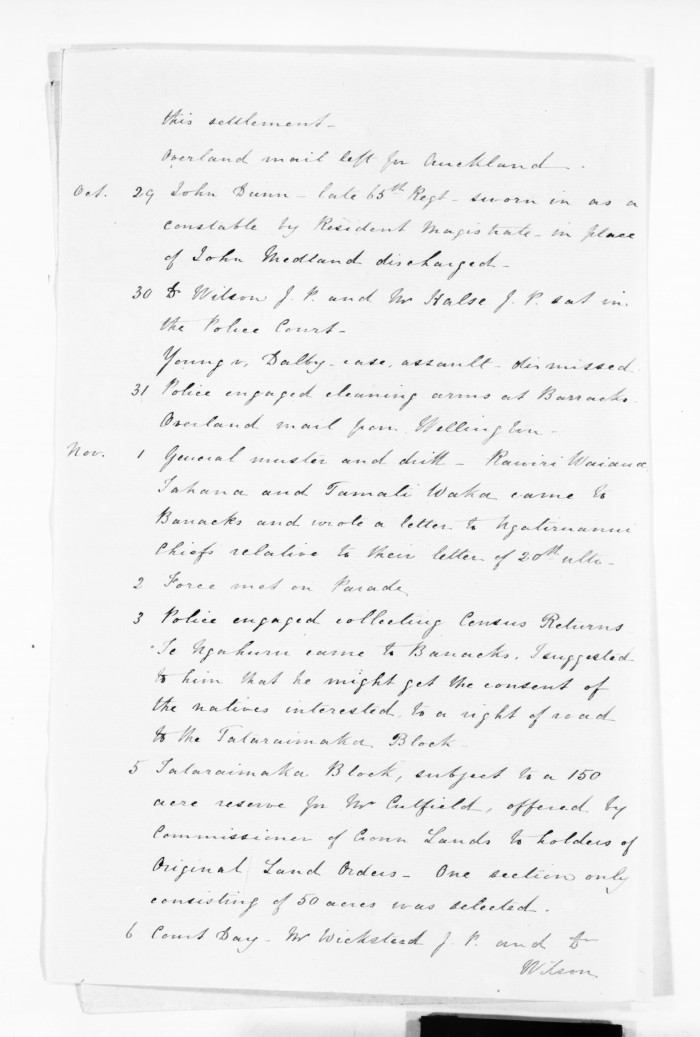 this settlement -
Overland mail left for Auckland.
Oct. 29 John Dunn - late 65th Regt - sworn in as a
constable by Resident Magistrate - in place
of John Medland discharged -
30 Dr Wilson J. P. and Mr Halse J. P. sat in
the Police Court -
Young v. Dalby - case, assault - dismissed.
31 Police engaged cleaning arms at Barracks.
Overland mail from Wellington -
Nov. 1 General muster and drill - Rawiri Waiaua
Tahana and Tamati Waka came to
Barracks and wrote a letter to Ngatiruanui
Chiefs relative to their letter of 20th ulto -
2 Force met on Parade
3 Police engaged collecting Census Returns
Te Ngahuru came to Barracks. I suggested
to him that he might get the consent of
the natives interested to a right of road
to the Tataraimaka Block -
5 Tataraimaka Block, subject to a 150
acre reserve for Mr Cutfield, offered by
Commissioner of Crown Lands to holders of
Original Land Orders - One section only
consisting of 50 acres was selected.
6 Court Day - Mr Wicksteed J. P. and Dr
Wilson